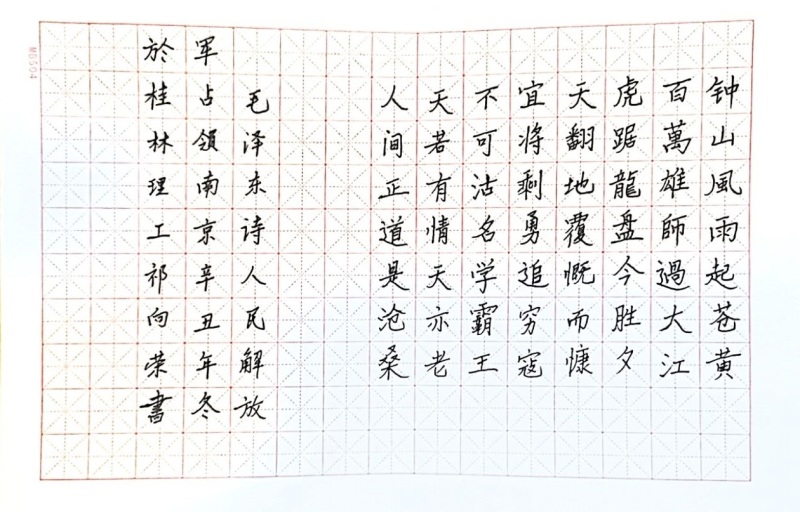 钟山風雨起苍黄
百萬雄師過大江
虎踞龍盘今胜夕
天翻地覆慨而慷
宜将剩勇追穷寇
不可沽名学霸王
天若有情天亦老
人间正道是沧桑
毛泽东诗人民解放
军占領南京辛丑年冬
於桂林理工祁向荣書